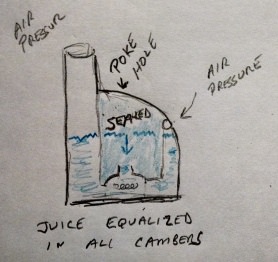 AIR
PRESSUR
POKE
HOLE
AIR
PRESSURE
SEALED
JUICE EQUALIZED
IN ALL CAMBERS